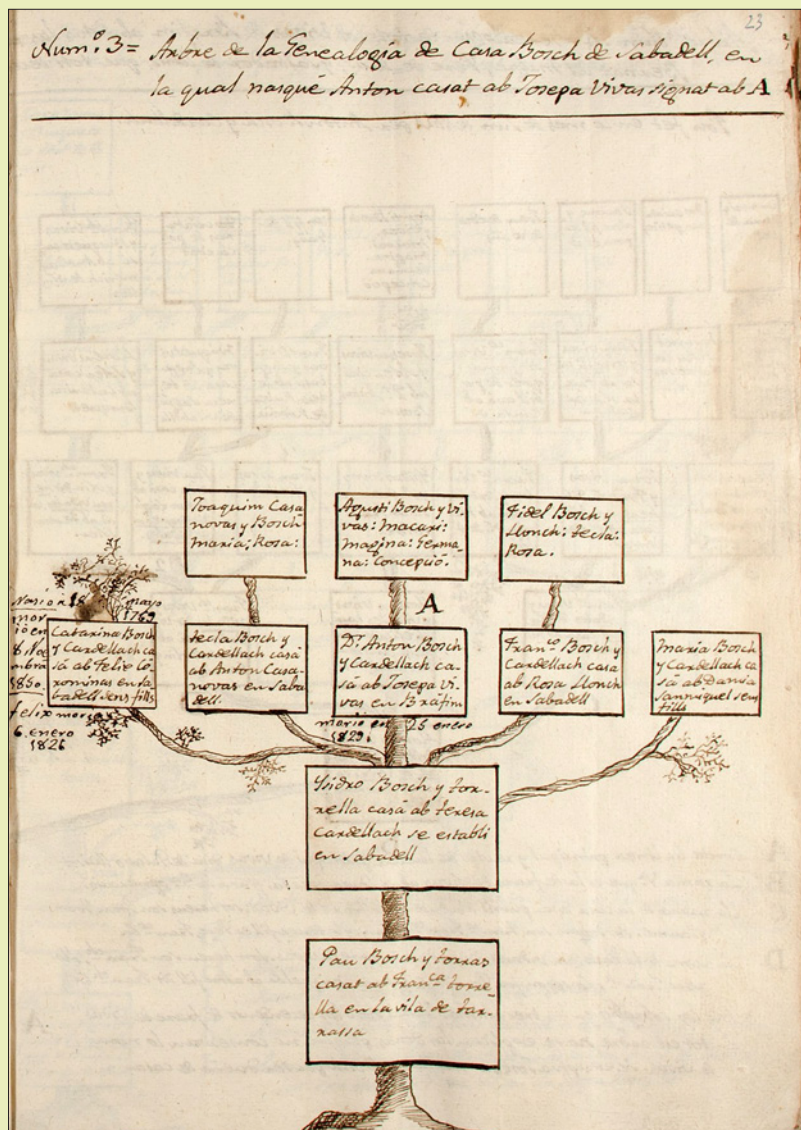 23
Num.º 3 = Arbre de la Genealogía de Casa Bosch de Sabadell, en
la qual nasqué Anton casat ab Josepa Vivas signat ab A
Joaquim Casa
novas y Bosch
Maria; Rosa:
Agusti Bosch y Vi
vas: Macari:
Magina: Germa
na: Concepció.
Fidel Bosch y
Llonch: Tecla:
Rosa.
A
Nasió a 18 mayo
1769
mor
ió en
8 No
embra
1850
Felix morí
6 enero
1826
Catarina Bosch
y Cardellach ca
sá ab Felix Co
rominas en Sa
badell sens fills
Tecla Bosch y
Cardellach casá
ab Anton Casa-
novas en Saba
dell.
Dr. Anton Bosch
y Cardellach ca-
sá ab Josepa Vi-
vas en Bráfim
Franco. Bosch y
Cardellach casá
ab Rosa Llonch
en Sabadell
Maria Bosch
y Cardellach ca
sá ab Damia
Sanmiquel sens
fills
mario en 25 enero
1829.
Ysidro Bosch y Tor-
rella casá ab Teresa
Cardellach se establi
en Sabadell
Pau Bosch y Torras
casat ab Franca. Torre-
lla en la vila de Tar-
rassa